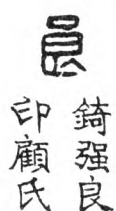 良
錡强良
印顧氏